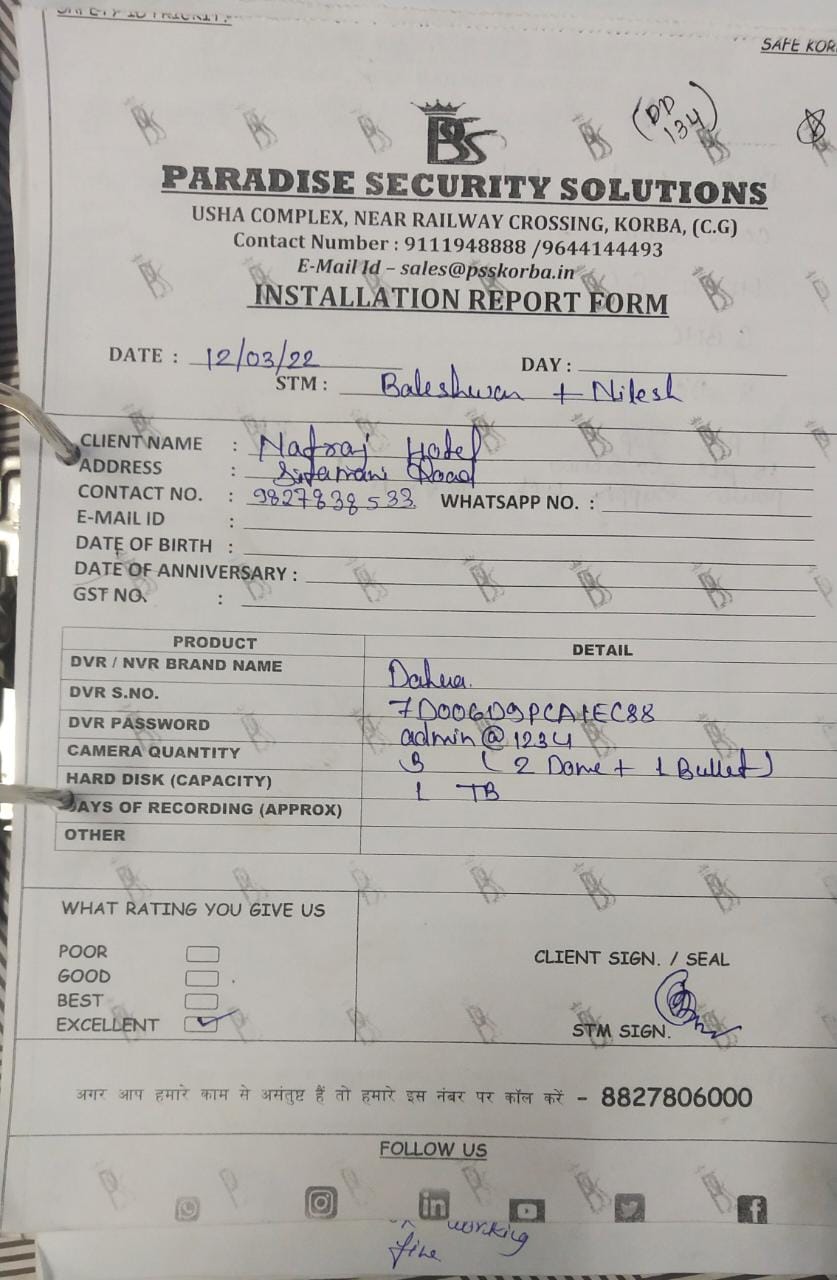 SAFETY IS PRIORITY.
SAFE KOR
(DD
134)
PSS
PARADISE SECURITY SOLUTIONS
USHA COMPLEX, NEAR RAILWAY CROSSING, KORBA, (C.G)
Contact Number : 9111948888 /9644144493
E-Mail Id – sales@psskorba.in
INSTALLATION REPORT FORM
DATE : 12/03/22 DAY :
STM : Baleshwar + Nilesh
CLIENT NAME : Natraj Hotel
ADDRESS : Sitamani Road
CONTACT NO. : 9827838533 WHATSAPP NO. :
E-MAIL ID :
DATE OF BIRTH :
DATE OF ANNIVERSARY :
GST NO. :
PRODUCT DETAIL
DVR / NVR BRAND NAME Dahua.
DVR S.NO. 7D006D9PCA1EC88
DVR PASSWORD admin@1234
CAMERA QUANTITY 3 ( 2 Dome + 1 Bullet)
HARD DISK (CAPACITY) 1 TB
DAYS OF RECORDING (APPROX)
OTHER
WHAT RATING YOU GIVE US
POOR
GOOD
BEST
EXCELLENT
CLIENT SIGN. / SEAL
STM SIGN.
अगर आप हमारे काम से असंतुष्ट हैं तो हमारे इस नंबर पर कॉल करें – 8827806000
FOLLOW US
in
working
fine